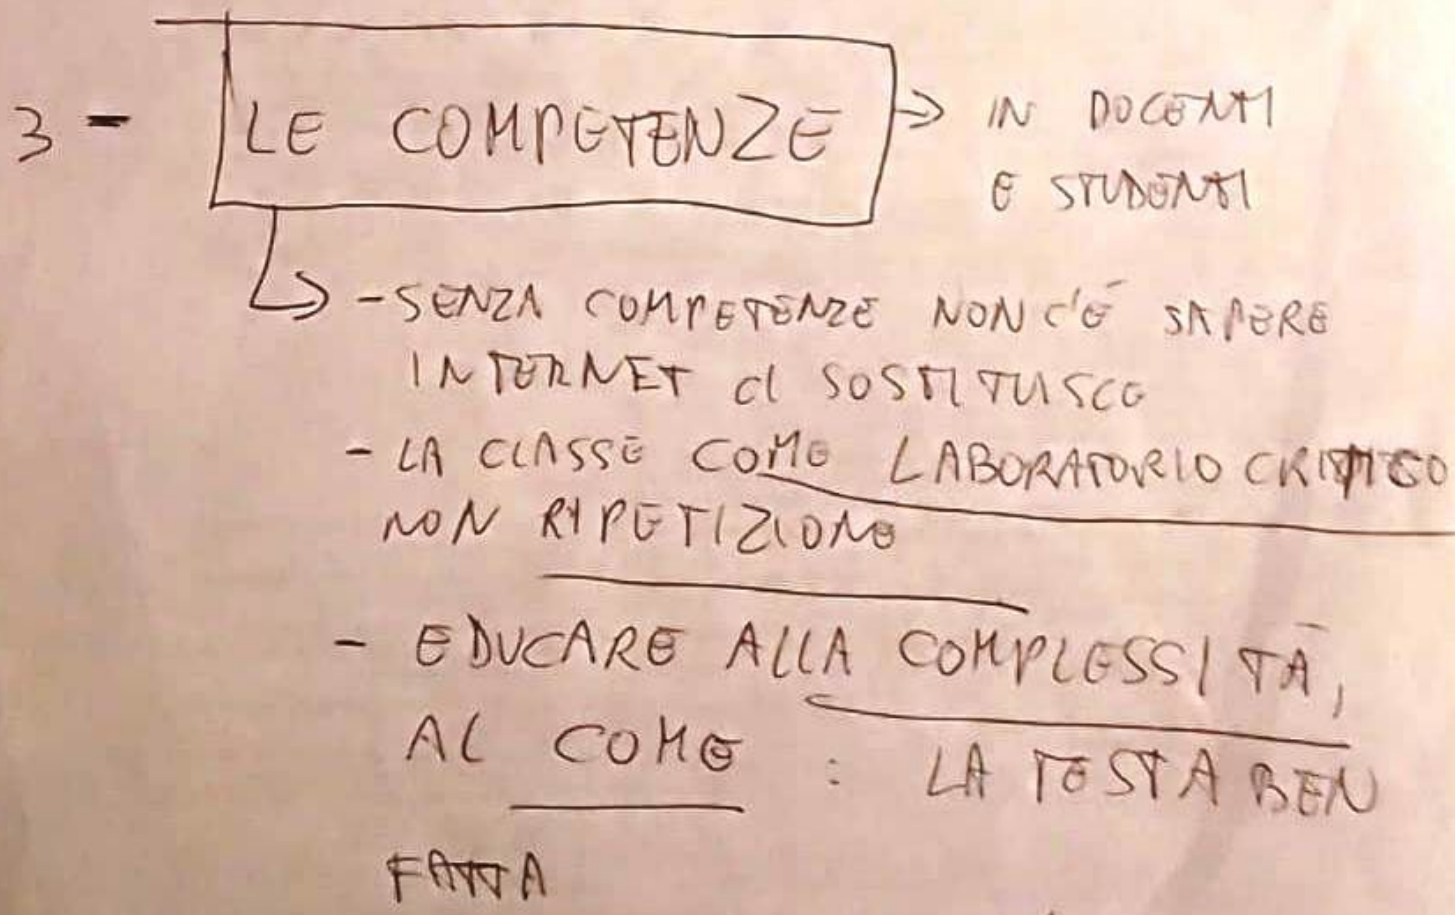 3 - LE COMPETENZE → IN DOCENTI
E STUDENTI
- SENZA COMPETENZE NON C'È SAPERE
INTERNET CI SOSTITUISCE
- LA CLASSE COME LABORATORIO CRITICO
NON RIPETIZIONE
- EDUCARE ALLA COMPLESSITÀ,
AL COME : LA TESTA BEN
FATTA